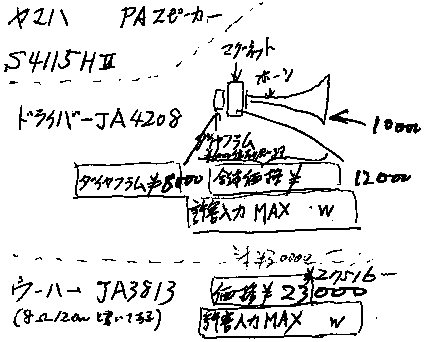 ヤマハ PAスピーカー
S4115HⅡ
マグネット
ホーン
ドライバーJA4208
ダイヤフラム
10000
ダイヤフラム¥8000 全体価格¥ 12000
許容入力 MAX W
計¥30000
¥27516-
ウーハー JA3813 価格¥23000
(8Ω120Wと書いてある) 許容入力 MAX W